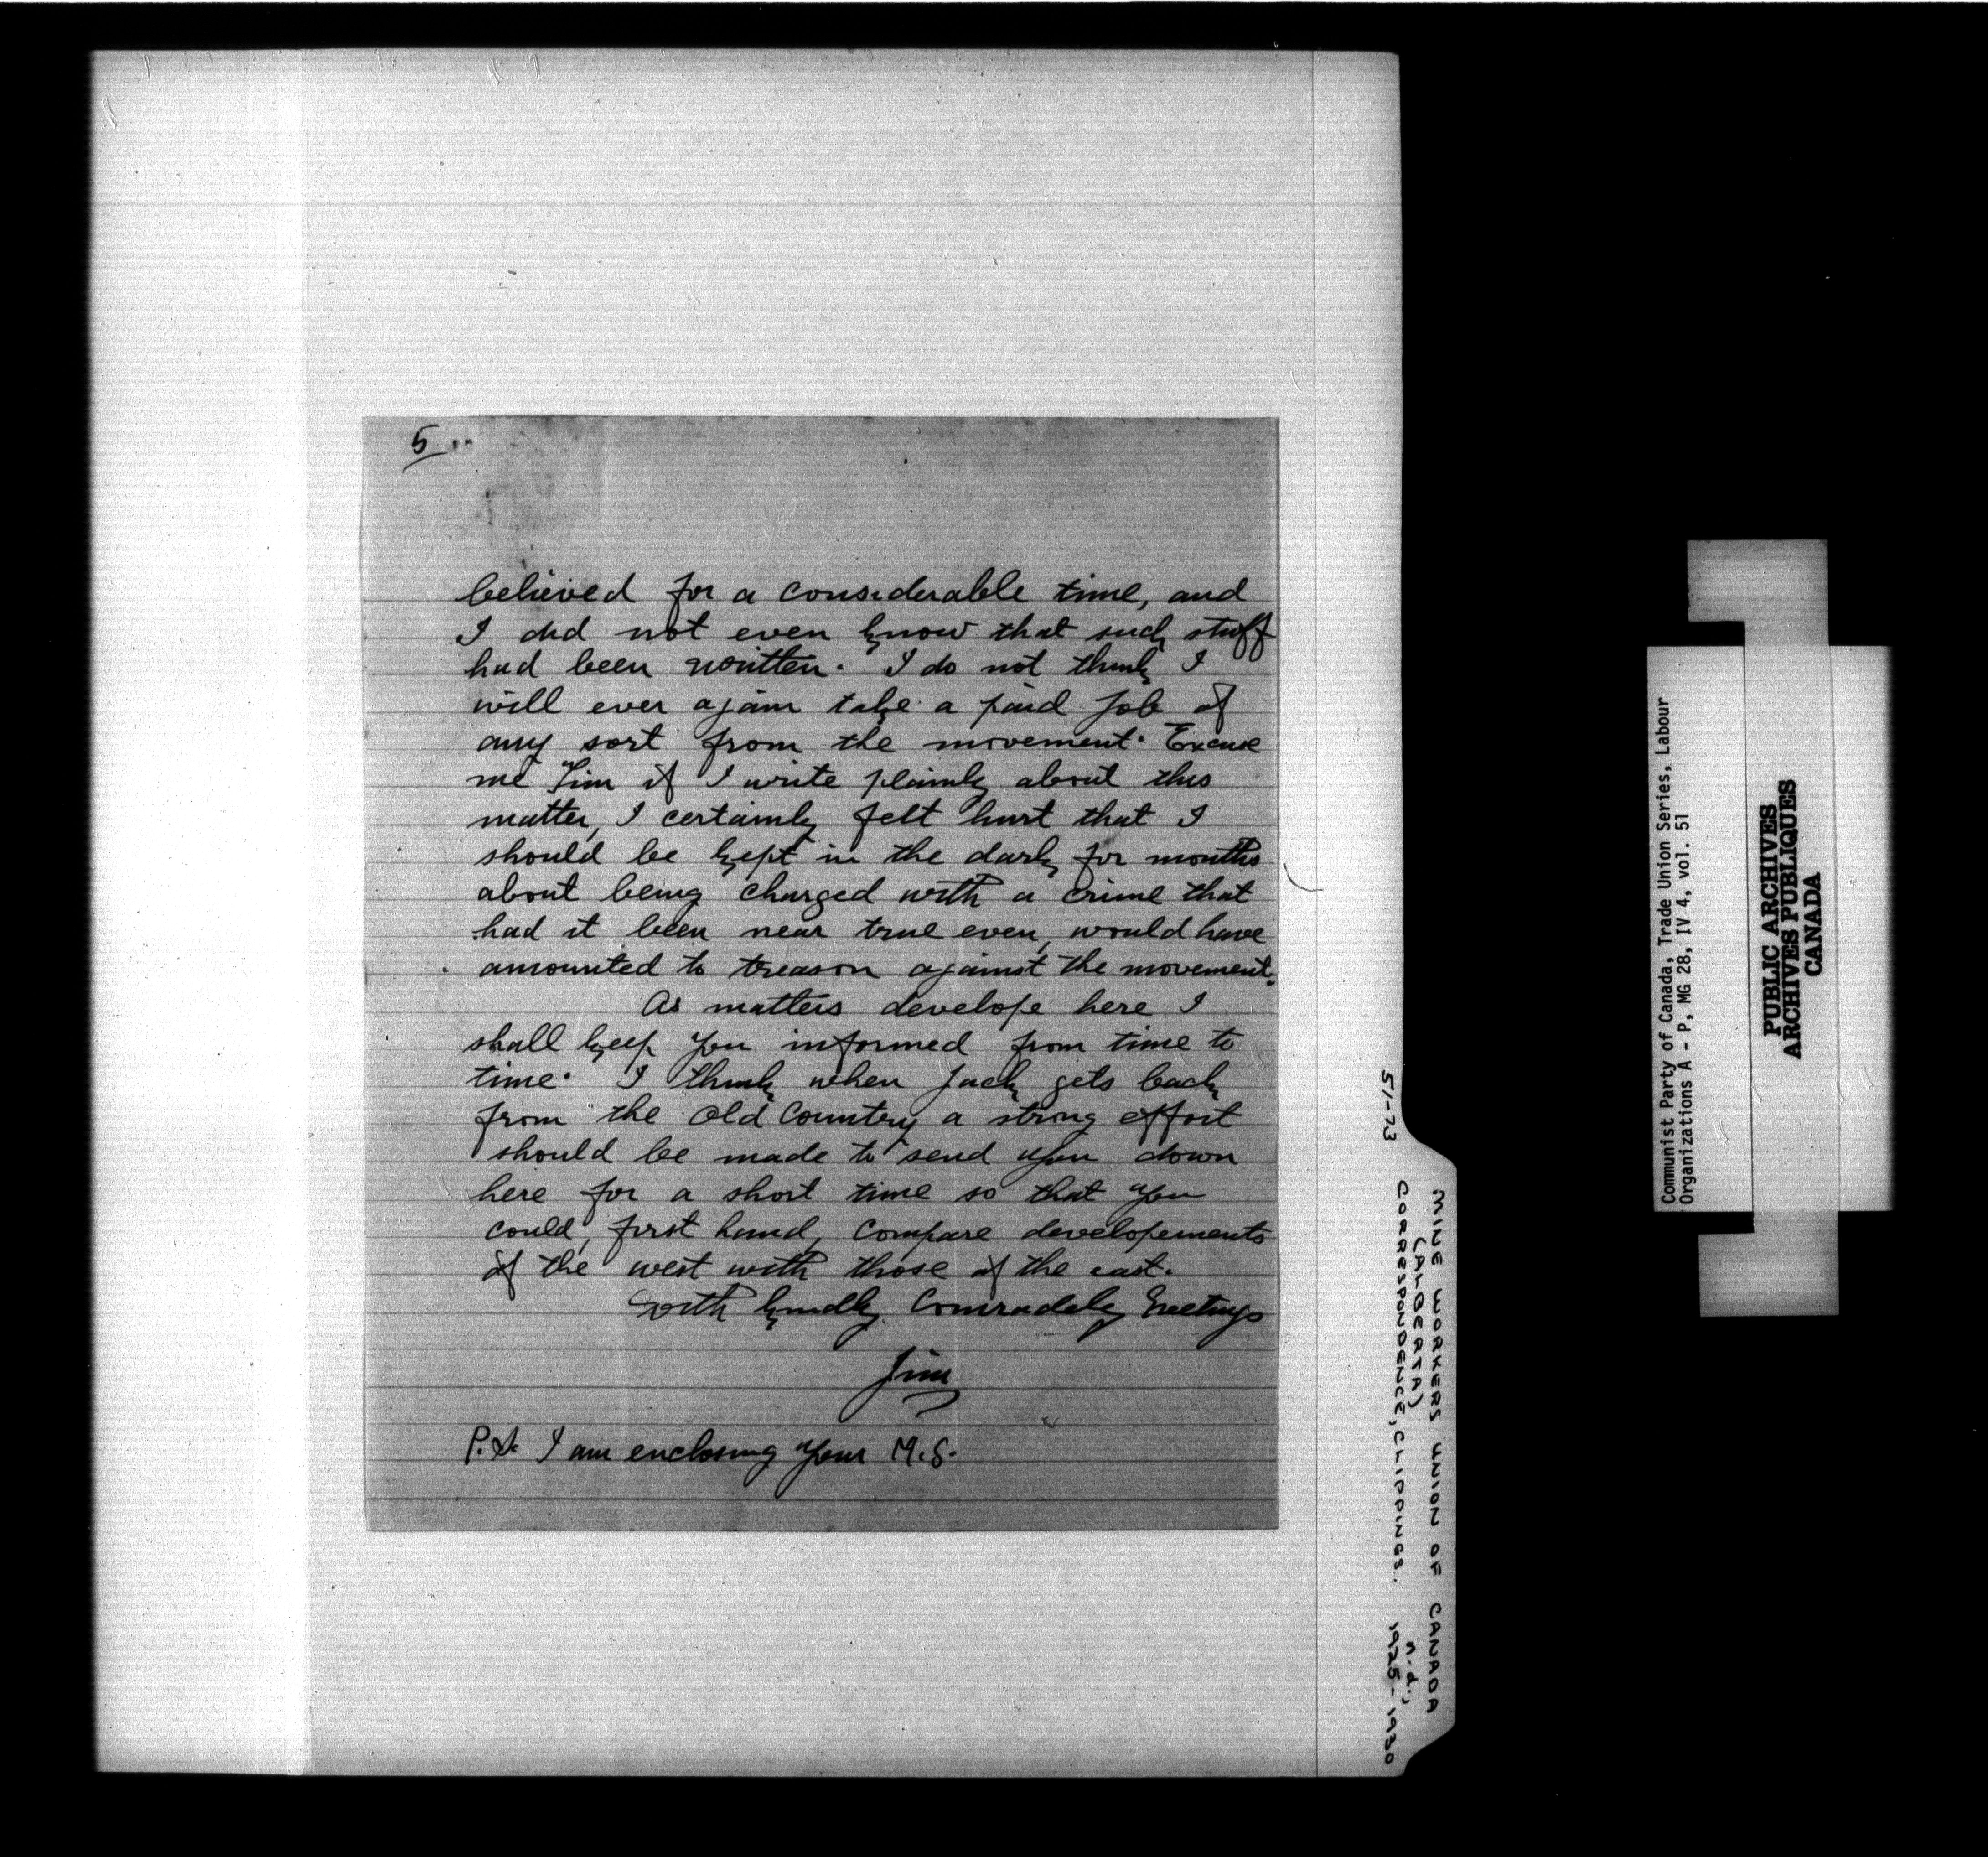 5
believed for a considerable time, and
I did not even know that such stuff
had been written. I do not think I
will ever again take a paid job of
any sort from the movement. Excuse
me Tim if I write plainly about this
matter, I certainly felt hurt that I
should be kept in the dark for months
about being charged with a crime that
had it been near true even, would have
amounted to treason against the movement.
As matters develope here I
shall keep you informed from time to
time. I think when Jack gets back
from the Old Country a strong effort
should be made to send you down
here for a short time so that you
could, first hand, compare developements
of the west with those of the east.
With kindly Comradely Greetings
Jim
P.S. I am enclosing your M.S.
51-73
MINE WORKERS UNION OF CANADA
(ALBERTA) n.d.,
CORRESPONDENCE, CLIPPINGS. 1925-1930
Communist Party of Canada, Trade Union Series, Labour
Organizations A - P, MG 28, IV 4, vol. 51
PUBLIC ARCHIVES
ARCHIVES PUBLIQUES
CANADA